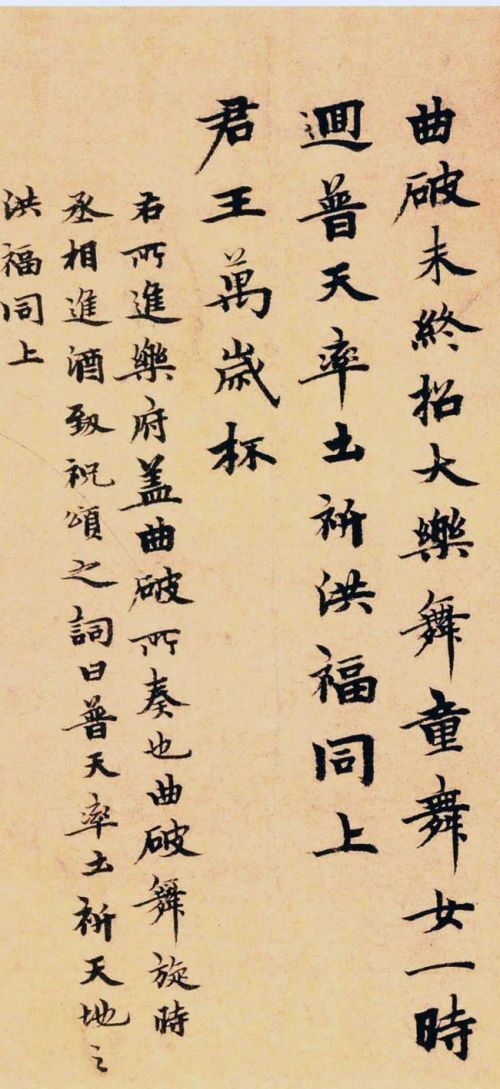 曲破未終招大樂舞童舞女一時
迴普天率土祈洪福同上
君王萬歲杯
右所進樂府盖曲破所奏也曲破舞旋時
丞相進酒致祝頌之詞曰普天率土祈天地之
洪福同上